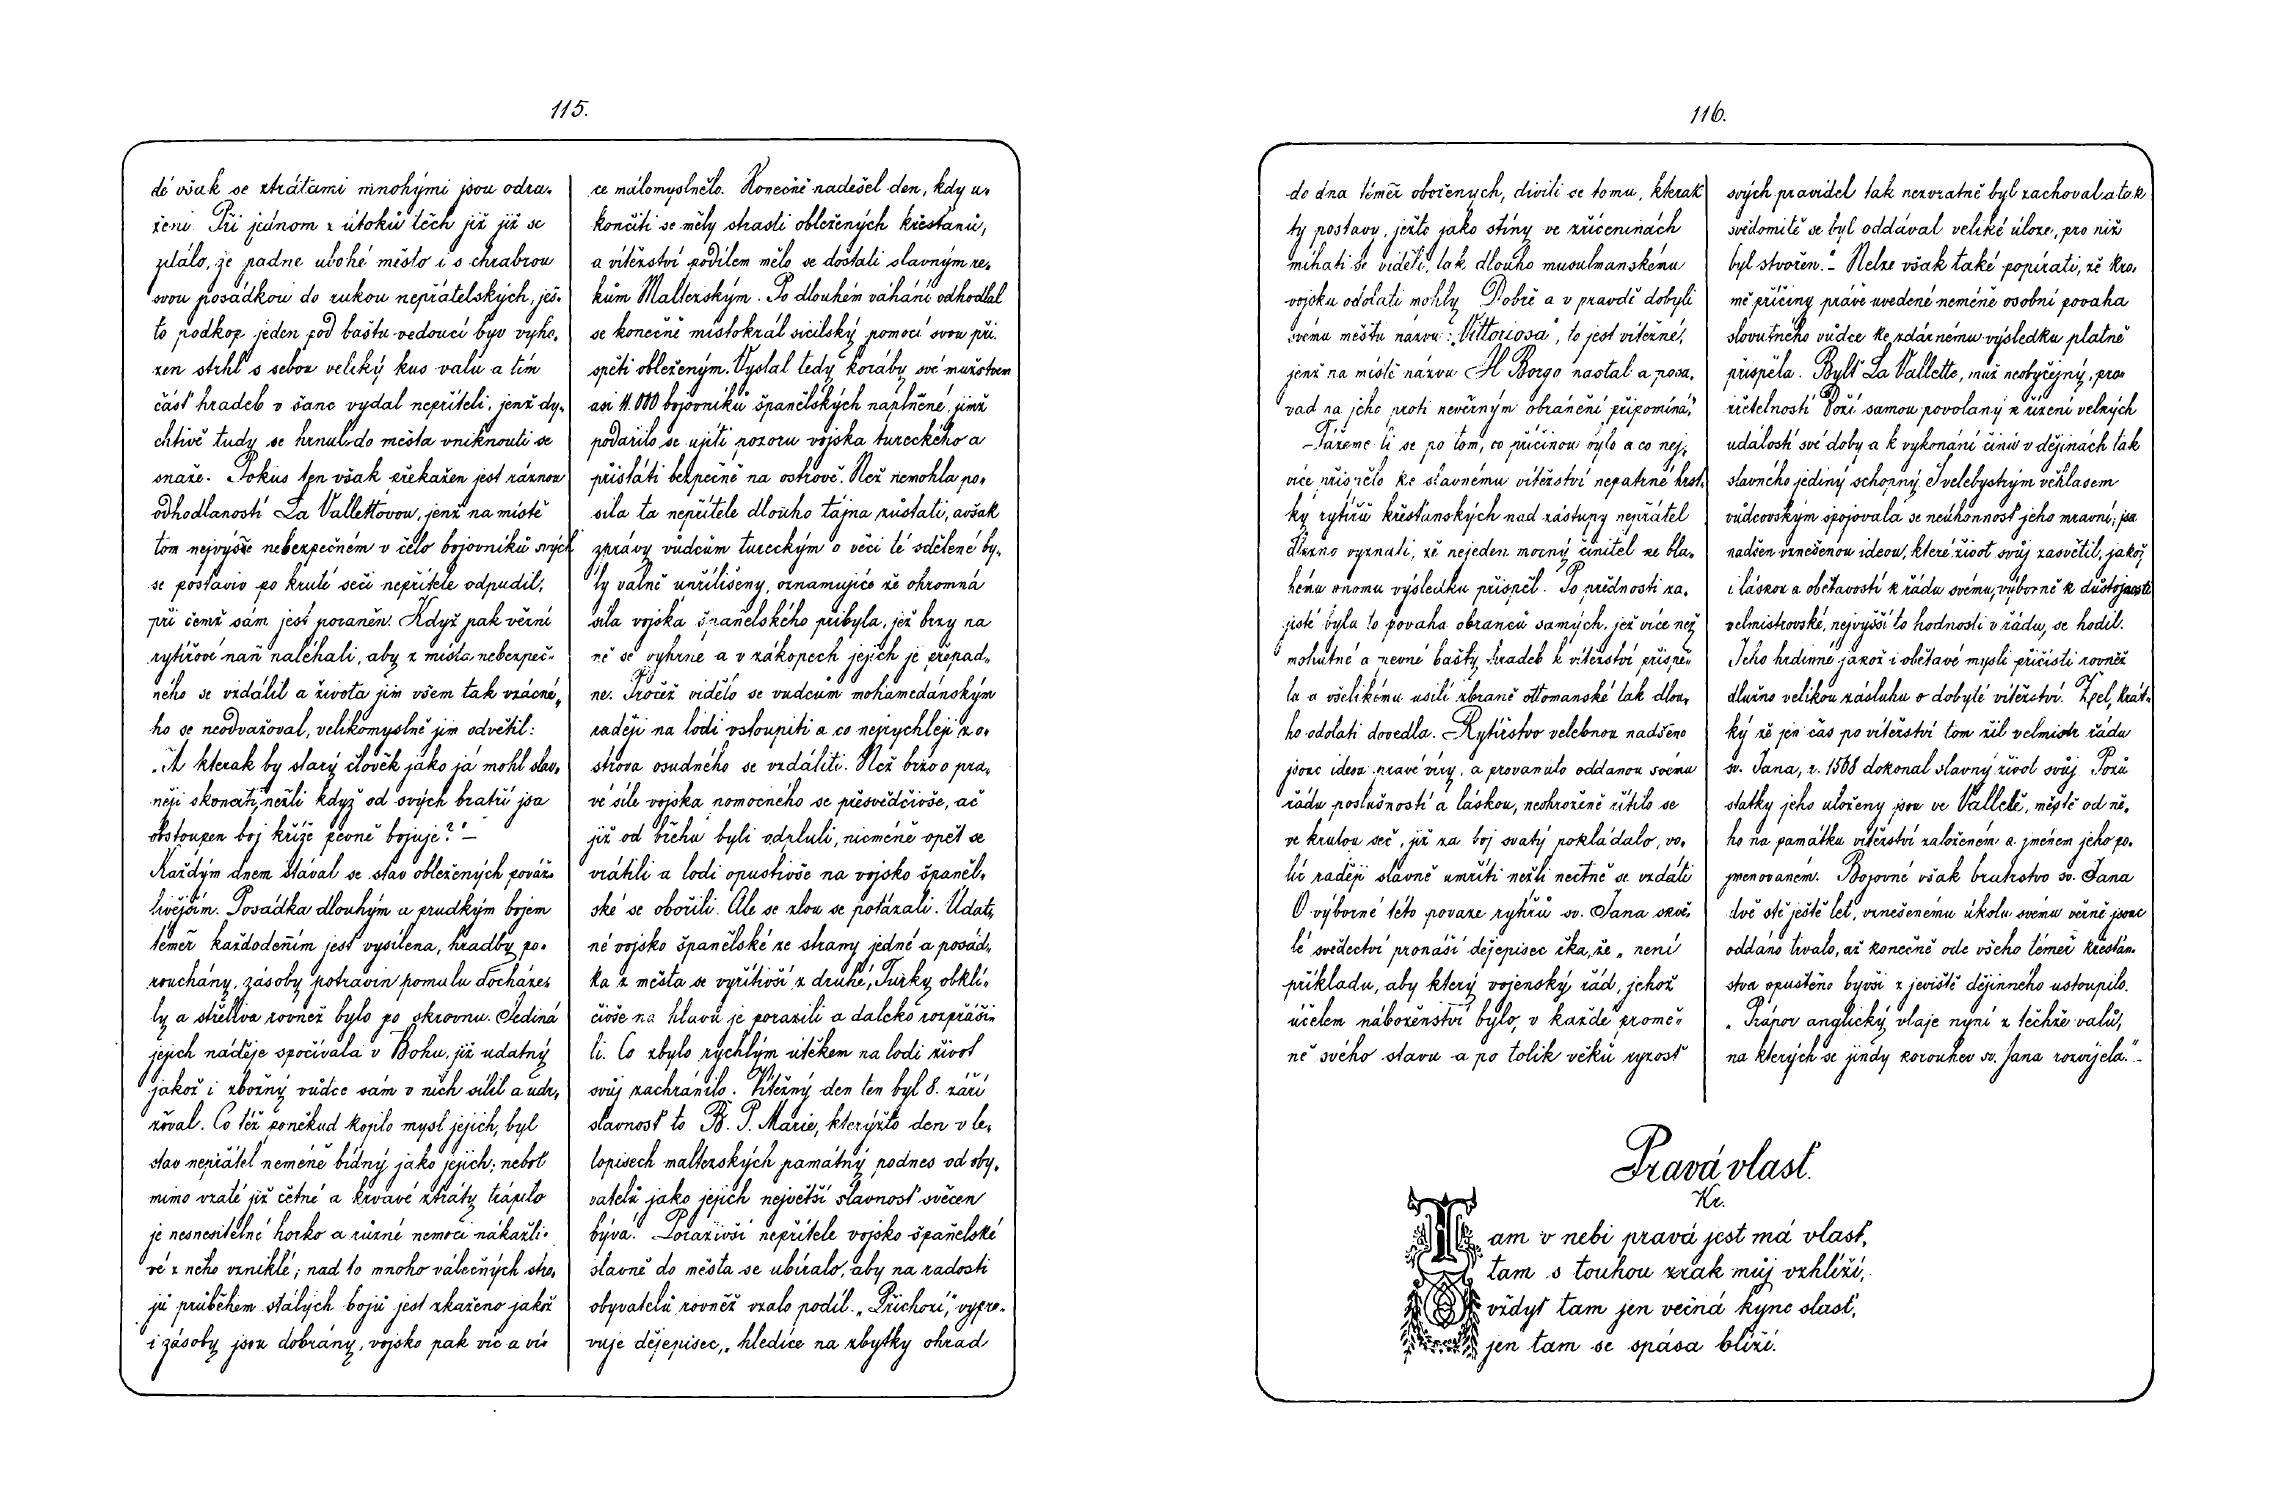 115.
dé však se ztrátami mnohými jsou odra-
ženi. Při jednom z útoků těch již již se
zdálo, že padne ubohé město i s chrabrou
svou posádkou do rukou nepřátelských, ješ-
to podkop jeden pod baštu vedoucí byv vyho-
zen strhl s sebou veliký kus valu a tím
část hradeb v šanc vydal nepříteli, jenž dy-
chtivě tudy se hrnul do města vniknouti se
snaže. Pokus ten však překažen jest ráznou
odhodlaností La Vallettovou, jenž na místě
tom nejvýše nebezpečném v čelo bojovníků svých
se postaviv po kruté seči nepřítele odpudil,
při čemž sám jest poraněn. Když pak věrní
rytířové naň naléhali, aby z místa nebezpeč-
ného se vzdálil a života jim všem tak vzácné-
ho se neodvažoval, velikomyslně jim odvětil:
„A kterak by starý člověk jako já mohl slav-
něji skonati, nežli když od svých bratří jsa
obstoupen boj kříže pevně bojuje?" —
Každým dnem stával se stav obležených pováž-
livějším. Posádka dlouhým a prudkým bojem
téměř každodením jest vysílena, hradby po-
rouchány, zásoby potravin pomalu docháze-
ly a střeliva rovněž bylo po skrovnu. Jediná
jejich naděje spočívala v Bohu, již udatný
jakož i zbožný vůdce sám v nich sílil a udr-
žoval. Co též poněkud kojilo mysl jejich, byl
stav nepřátel neméně bídný jako jejich; neboť
mimo vzaté již četné a krvavé ztráty trápilo
je nesnesitelné horko a různé nemoci nákažli-
vé z něho vzniklé; nad to mnoho válečných stro-
jů průběhem stálých bojů jest zkaženo jakož
i zásoby jsou dobrány, vojsko pak víc a víc
ce málomyslnělo. Konečně nadešel den, kdy u-
končiti se měly strasti obležených křesťanů,
a vítězství podílem mělo se dostati slavným re-
kům Maltezským. Po dlouhém váhání odhodlal
se konečně místokrál sicilský pomocí svou při-
spěti obleženým. Vyslal tedy koráby své mužstvem
asi 11.000 bojovníků španělských naplněné, jimž
podařilo se ujíti pozoru vojska tureckého a
přistáti bezpečně na ostrově. Než nemohla po-
sila ta nepřítele dlouho tájna zůstati, avšak
zprávy vůdcům tureckým o věci té sdělené by-
ly valně unšlišeny, oznamujíce že ohromná
síla vojska španělského přibyla, jež brzy na
ně se vyhrne a v zákopech jejich je přepad-
ne. Pročež vidělo se vůdcům mohamedánským
raději na lodi vstoupiti a co nejrychleji z o-
strova osudného se vzdáliti. Než brzo o pra-
vé síle vojska pomocného se přesvědčivše, ač
již od břehu byli odpluli, nicméně opět se
vrátili a lodi opustivše na vojsko španěl-
ské se obořili. Ale se zlou se potázali. Udat-
né vojsko španělské ze strany jedné a posád-
ka z města se vyřítivší z druhé, Turky obklí-
čivše na hlavu je porazili a daleko rozpráši-
li. Co zbylo rychlým útěkem na lodi život
svůj zachránilo. Vítězný den ten byl 8. září
slavnosť to B. P. Marie, kterýžto den v le-
topisech maltezských památný podnes od oby-
vatelů jako jejich největší slavnosť svěcen
bývá. Porazivší nepřítele vojsko španělské
slavně do města se ubíralo, aby na radosti
obyvatelů rovněž vzalo podíl. „Příchozí," vypra-
vuje dějepisec, „hledíce na zbytky ohrad
116.
do dna téměř obořených, divili se tomu, kterak
ty postavy, ježto jako stíny ve zříceninách
míhati se viděli, tak dlouho musulmanskému
vojsku odolati mohly. Dobře a v pravdě dobyli
svému městu názvu: „Vittoriosa", to jest vítězné,
jenž na místě názvu Il Borgo nastal a posa-
vad na jeho proti nevěrným obránění připomíná."
— Tážeme-li se po tom, co příčinou bylo a co nej-
více přispělo ke slavnému vítězství nepatrné hrst-
ky rytířů křesťanských nad zástupy nepřátel
dlužno vyznati, že nejeden mocný činitel ke bla-
hému onomu výsledku přispěl. Po přednosti za-
jisté byla to povaha obránců samých, jež více než
mohutné a pevné bašty hradeb k vítězství přispě-
la a všelikému usilí zbraně ottomanské tak dlou-
ho odolati dovedla. Rytířstvo velebnou nadšeno
jsouc ideou pravé víry, a provanuto oddanou svému
řádu poslušností a láskou, neohroženě řítilo se
ve krutou seč, již za boj svatý pokládalo, vo-
líc raději slavně umříti nežli nectně se vzdáti
O výborné této povaze rytířů sv. Jana skvě-
lé svědectví pronáší dějepisec řka, že „není
příkladu, aby který vojenský řád, jehož
účelem náboženství bylo, v každé promě-
ně svého stavu a po tolik věků ryzosť
svých pravidel tak nezvratně byl zachoval a tak
svědomitě se byl oddával veliké úloze, pro niž
byl stvořen." — Nelze však také popírati, že kro-
mě příčiny právě uvedené neméně osobní povaha
slovutného vůdce ke zdárnému výsledku platně
přispěla. Bylť La Vallette, muž neobyčejný, pro-
zřetelností Boží samou povolaný k řízení velkých
událostí své doby a k vykonání činů v dějinách tak
slavného jediný schopný. S velebystrým věhlasem
vůdcovským spojovala se neúhonnosť jeho mravní; jsa
nadšen vznešenou ideou, které život svůj zasvětil, jakož
i láskou a obětavostí k řádu svému, výborně k důstojnosti
velmistrovské, nejvyšší to hodnosti v řádu, se hodil.
Jeho hrdinné jakož i obětavé mysli přičísti rovněž
dlužno velikou zásluhu o dobyté vítězství. Žel, krát-
ký že jen čas po vítězství tom žil velmistr řádu
sv. Jana, r. 1568 dokonal slavný život svůj. Pozů
statky jeho uloženy jsou ve Vallettě, městě od ně-
ho na památku vítězství založeném a jménem jeho po-
jmenovaném. Bojovné však bratrstvo sv. Jana
dvě stě ještě let, vznešenému úkolu svému věrně jsouc
oddáno trvalo, až konečně ode všeho téměř křesťan-
stva opuštěno byvši z jeviště dějinného ustoupilo.
„Prápor anglický vlaje nyní z těchže valů,
na kterých se jindy korouhev sv. Jana rozvíjela." —
Pravá vlasť.
Kr.
Tam v nebi pravá jest má vlasť,
tam s touhou zrak můj vzhlíží,
vždyť tam jen věčná kyne slasť,
jen tam se spása blíží.